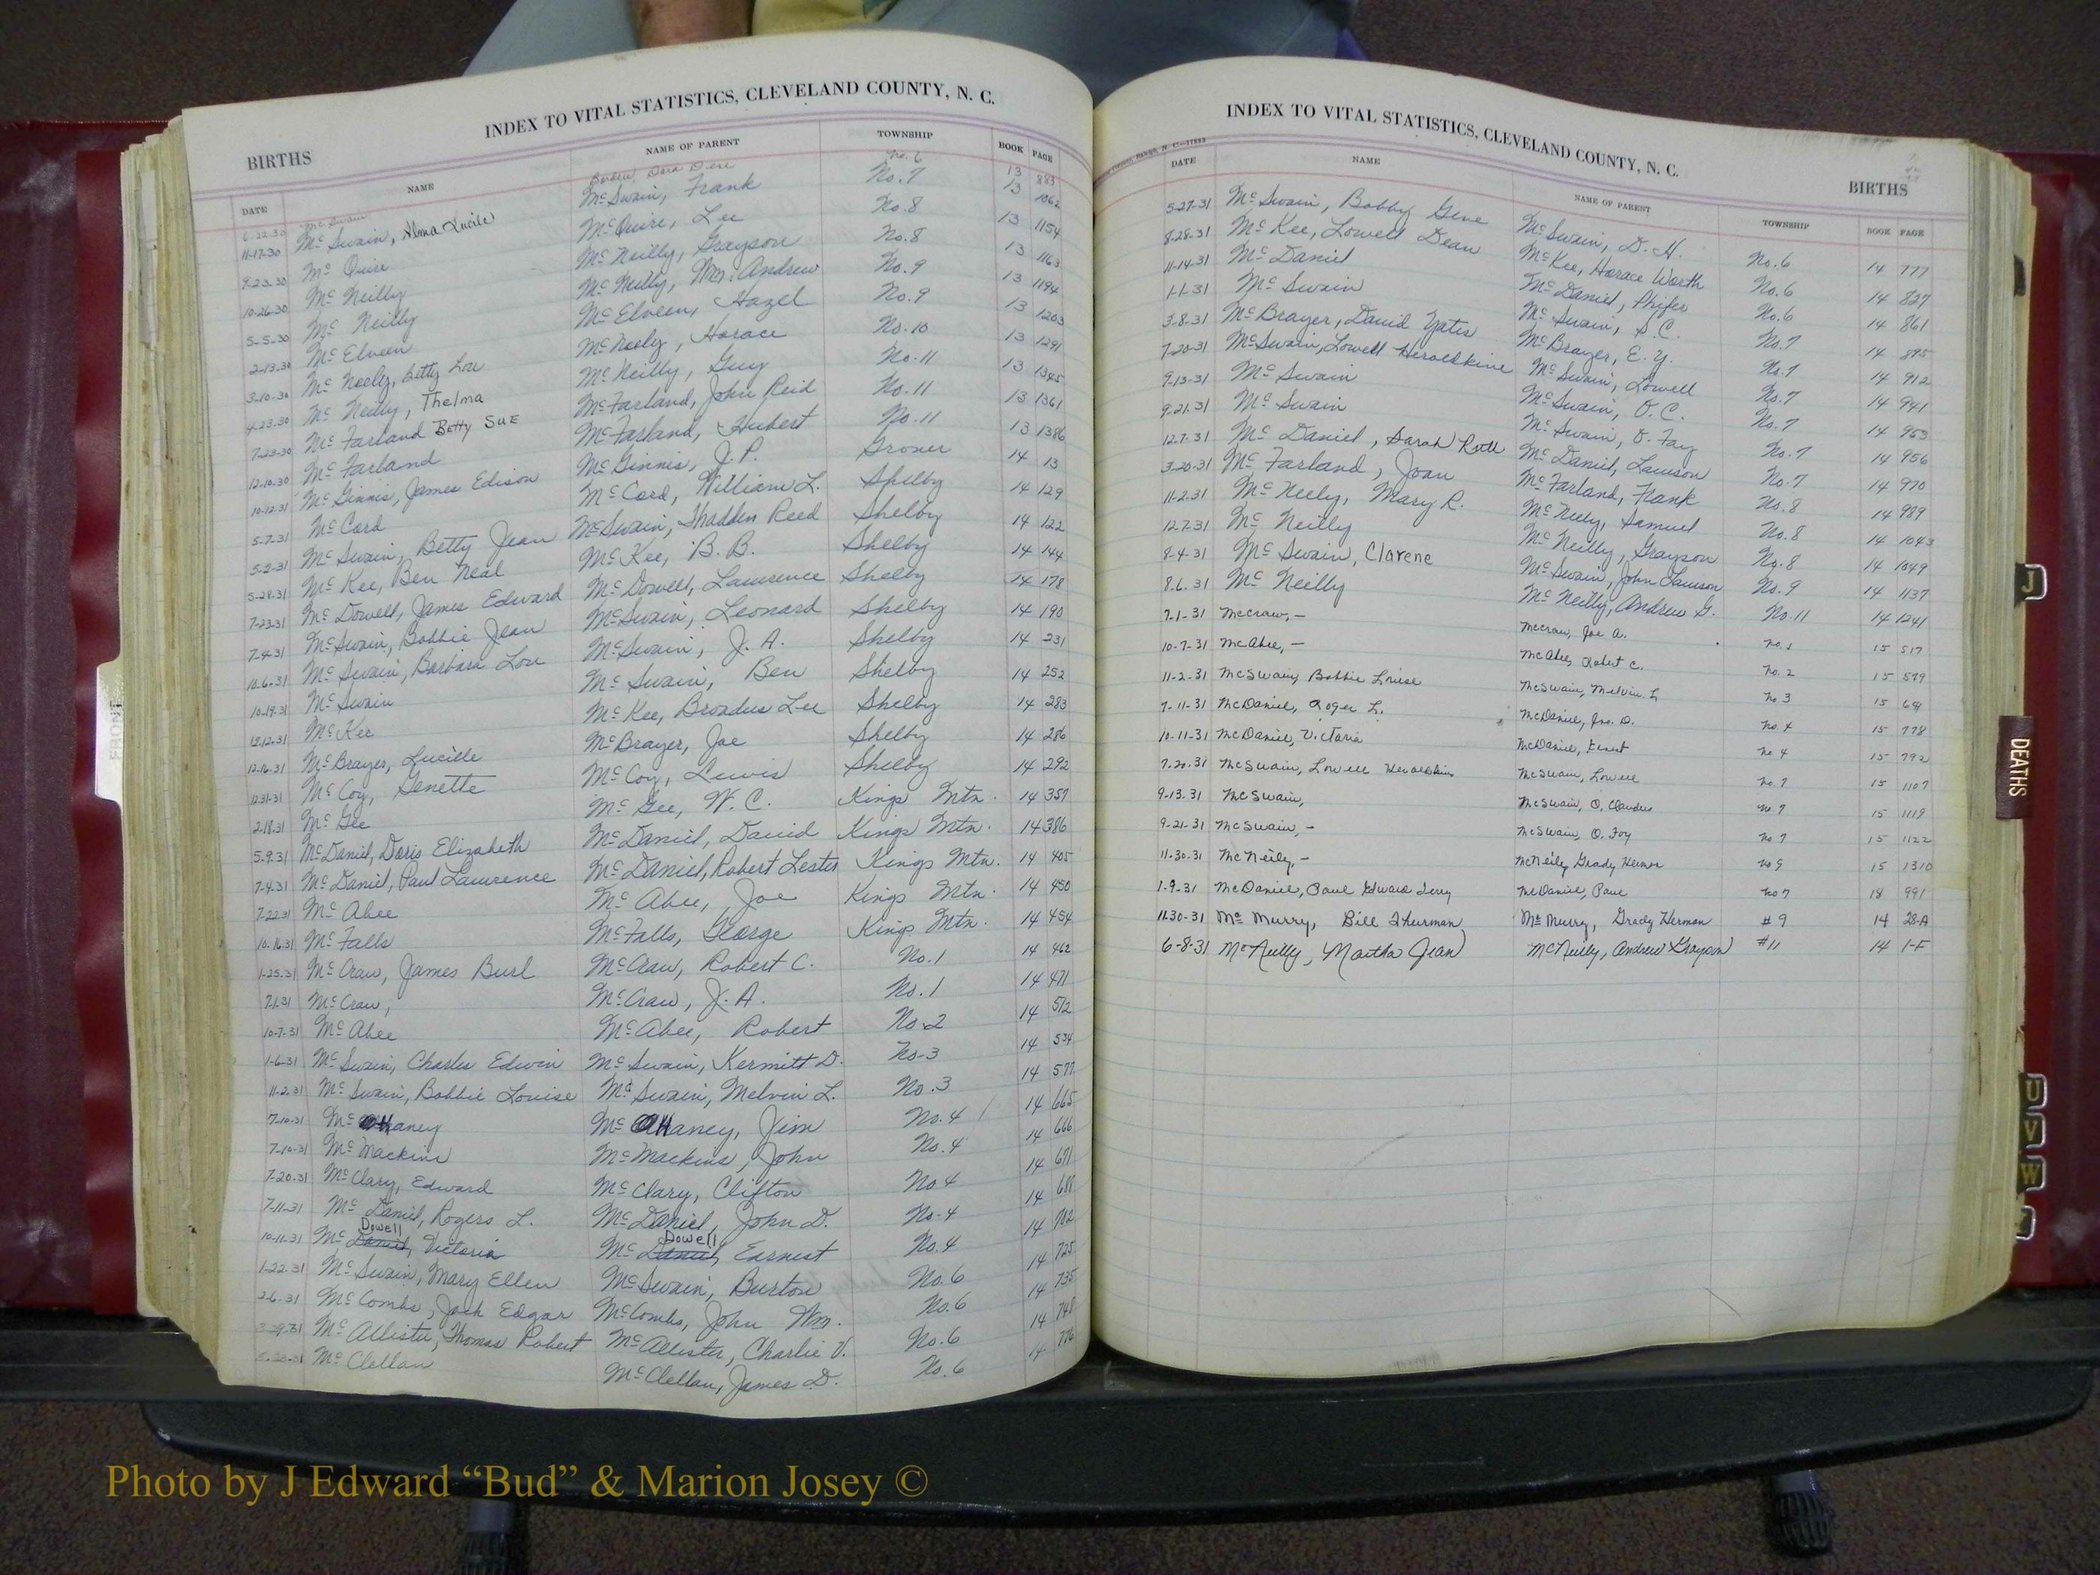 INDEX TO VITAL STATISTICS, CLEVELAND COUNTY, N. C.
BIRTHS
DATE NAME NAME OF PARENT TOWNSHIP BOOK PAGE
6-22-30 McSwain Borders, Dora Dere No. 6 13 883
11-17-30 McSwain, Alma Lucile McSwain, Frank No. 7 13 1062
9-23-30 McQuire McQuire, Lee No. 8 13 1154
10-26-30 McNeilly McNeilly, Grayson No. 8 13 1163
5-5-30 McNeilly McNeilly, Wm. Andrew No. 9 13 1194
2-13-30 McElveen McElveen, Hazel No. 9 13 1203
3-10-30 McNeely, Betty Lou McNeely, Horace No. 10 13 1291
4-23-30 McNeilly, Thelma McNeilly, Guy No. 11 13 1345
7-23-30 McFarland Betty Sue McFarland, John Reid No. 11 13 1361
12-10-30 McFarland McFarland, Hubert No. 11 13 1386
10-12-31 McGinnis, James Edison McGinnis, J. P. Grover 14 13
5-7-31 McCord McCord, William L. Shelby 14 129
5-2-31 McSwain, Betty Jean McSwain, Thadden Reed Shelby 14 122
5-28-31 McKee, Ben Neal McKee, B. B. Shelby 14 144
7-23-31 McDowell, James Edward McDowell, Lawrence Shelby 14 178
7-4-31 McSwain, Bobbie Jean McSwain, Leonard Shelby 14 190
10-6-31 McSwain, Barbara Lou McSwain, J. A. Shelby 14 231
10-19-31 McSwain McSwain, Ben Shelby 14 252
12-12-31 McKee McKee, Broadus Lee Shelby 14 283
12-16-31 McBrayer, Lucille McBrayer, Joe Shelby 14 286
12-31-31 McCoy, Genette McCoy, Lewis Shelby 14 292
2-18-31 McGee McGee, W. C. Kings Mtn. 14 357
5-9-31 McDaniel, Doris Elizabeth McDaniel, David Kings Mtn. 14 386
7-4-31 McDaniel, Paul Lawrence McDaniel, Robert Lester Kings Mtn. 14 405
7-22-31 McAbee McAbee, Joe Kings Mtn. 14 450
10-16-31 McFalls McFalls, George Kings Mtn. 14 454
1-25-31 McCraw, James Burl McCraw, Robert C. No. 1 14 462
7-1-31 McCraw, McCraw, J. A. No. 1 14 471
10-7-31 McAbee McAbee, Robert No. 2 14 512
1-6-31 McSwain, Charles Edwin McSwain, Kermitt D. No-3 14 534
11-2-31 McSwain, Bobbie Louise McSwain, Melvin L. No. 3 14 577
7-10-31 McHaney McHaney, Jim No. 4 14 665
7-10-31 McMackins McMackins, John No. 4 14 666
7-20-31 McClary, Edward McClary, Clifton No 4 14 671
7-11-31 McDaniel, Rogers L. McDaniel, John D. No-4 14 688
10-11-31 McDaniel Dowell, Victoria McDaniel Dowell, Earnest No. 4 14 702
1-22-31 McSwain, Mary Ellen McSwain, Burton No. 6 14 725
2-6-31 McCombs, Jack Edgar McCombs, John Wm. No. 6 14 735
3-9-31 McAllister, Thomas Robert McAllister, Charlie V. No. 6 14 748
McClellan McClellan, James D. No. 6 14 776
INDEX TO VITAL STATISTICS, CLEVELAND COUNTY, N. C.
BIRTHS
DATE NAME NAME OF PARENT TOWNSHIP BOOK PAGE
5-27-31 McSwain, Bobby Gene McSwain, D. H. No. 6 14 777
8-28-31 McKee, Lowell Dean McKee, Horace Worth No. 6 14 827
11-14-31 McDaniel McDaniel, Phifer No. 6 14 861
1-1-31 McSwain McSwain, S. C. No. 7 14 895
3-8-31 McBrayer, David Yates McBrayer, E. Y. No. 7 14 912
7-20-31 McSwain, Lowell Heroldkine McSwain, Lowell No. 7 14 941
9-13-31 McSwain McSwain, O. C. No. 7 14 953
9-21-31 McSwain McSwain, O. Fay No. 7 14 956
12-7-31 McDaniel, Sarah Ruth McDaniel, Lawson No. 7 14 970
3-20-31 McFarland, Joan McFarland, Frank No. 8 14 989
11-2-31 McNeely, Mary R. McNeely, Samuel No. 8 14 1043
12-7-31 McNeilly McNeilly, Grayson No. 8 14 1049
8-4-31 McSwain, Clarene McSwain, John Lawson No. 9 14 1137
8-6-31 McNeilly McNeilly, Andrew G. No. 11 14 1241
7-1-31 McCraw, — McCraw, Joe A. No. 1 15 517
10-7-31 McAbee, — McAbee, Robert C. No. 2 15 579
11-2-31 McSwain, Bobbie Louise McSwain, Melvin L No 3 15
7-11-31 McDaniel, Roger L. McDaniel, Jno. D. No. 4 15 778
10-11-31 McDaniel, Victoria McDaniel, Ernest No 4 15 792
7-20-31 McSwain, Lowell McSwain, Lowell No. 7 15 1107
9-13-31 McSwain, McSwain, O. Claudus No. 7 15 1119
9-21-31 McSwain, — McSwain, O. Foy No 7 15 1122
11-30-31 McNeily — McNeily Grady Herman No 9 15 1310
1-9-31 McDaniel, Paul Edward Leroy McDaniel, Paul No 7 18 991
11-30-31 McMurry, Bill Thurman McMurry, Grady Herman #9 14 28-A
6-8-31 McNeilly, Martha Jean McNeilly, Andrew Grayson #11 14 1-F
FRONT
J
DEATHS
U
V
W
Photo by J Edward “Bud” & Marion Josey ©